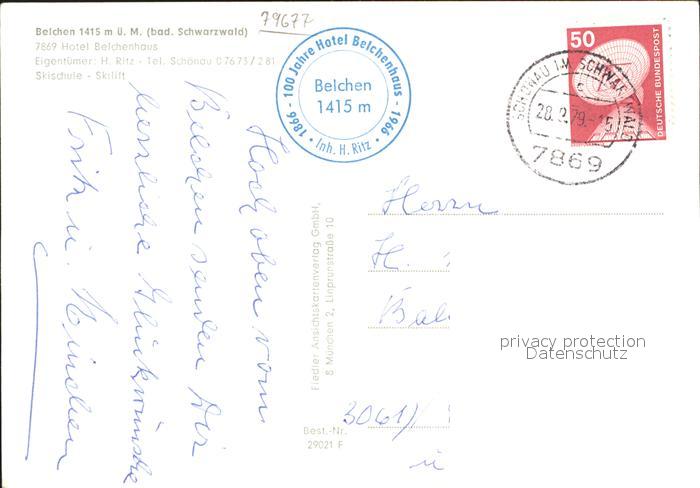 79677
Belchen 1415 m ü. M. (bad. Schwarzwald)
7869 Hotel Belchenhaus
Eigentümer: H. Ritz - Tel. Schönau 07673/281
Skischule - Skilift
1866 - 100 Jahre Hotel Belchenhaus - 1966
Belchen
1415 m
Inh. H. Ritz
50
DEUTSCHE BUNDESPOST
SCHÖNAU IM SCHWARZWALD
c
28.9.79.-15
7869
Hoch oben vom
Belchen senden Dir
herzliche Glückwünsche
Fritz u. Hinchen
Fiedler Ansichtskartenverlag GmbH,
8 München 2, Linprunstraße 10
Best.-Nr.
29021 F
Herrn
H.
Bal
3061)
ü
privacy protection
Datenschutz